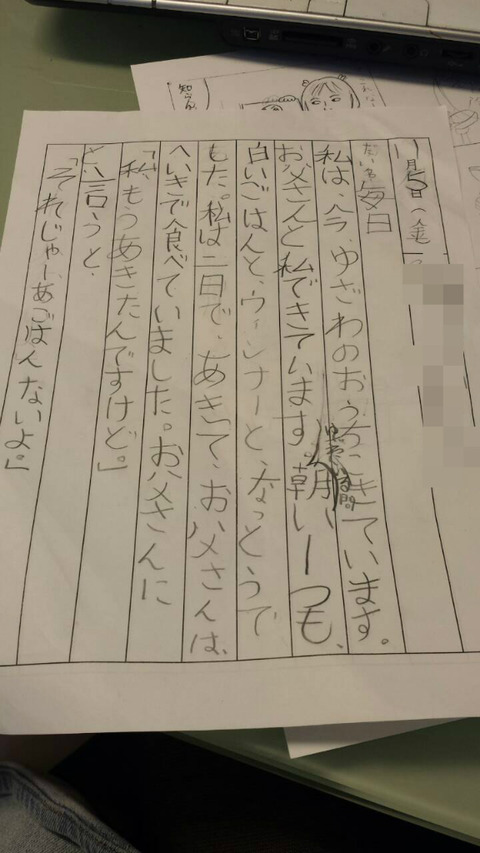 11月5日(金
だい名 毎日
私は、今、ゆざわのおうちにきています。
お父さんと私できています。朝いーつも、
白いごはんと、ウィンナーと、なっとうで
した。私は二日で、あきて、お父さんは、
へいきで食べていました。お父さんに
「私、もうあきたんですけど。」
と言うと、
「それじゃーあごはんないよ。」